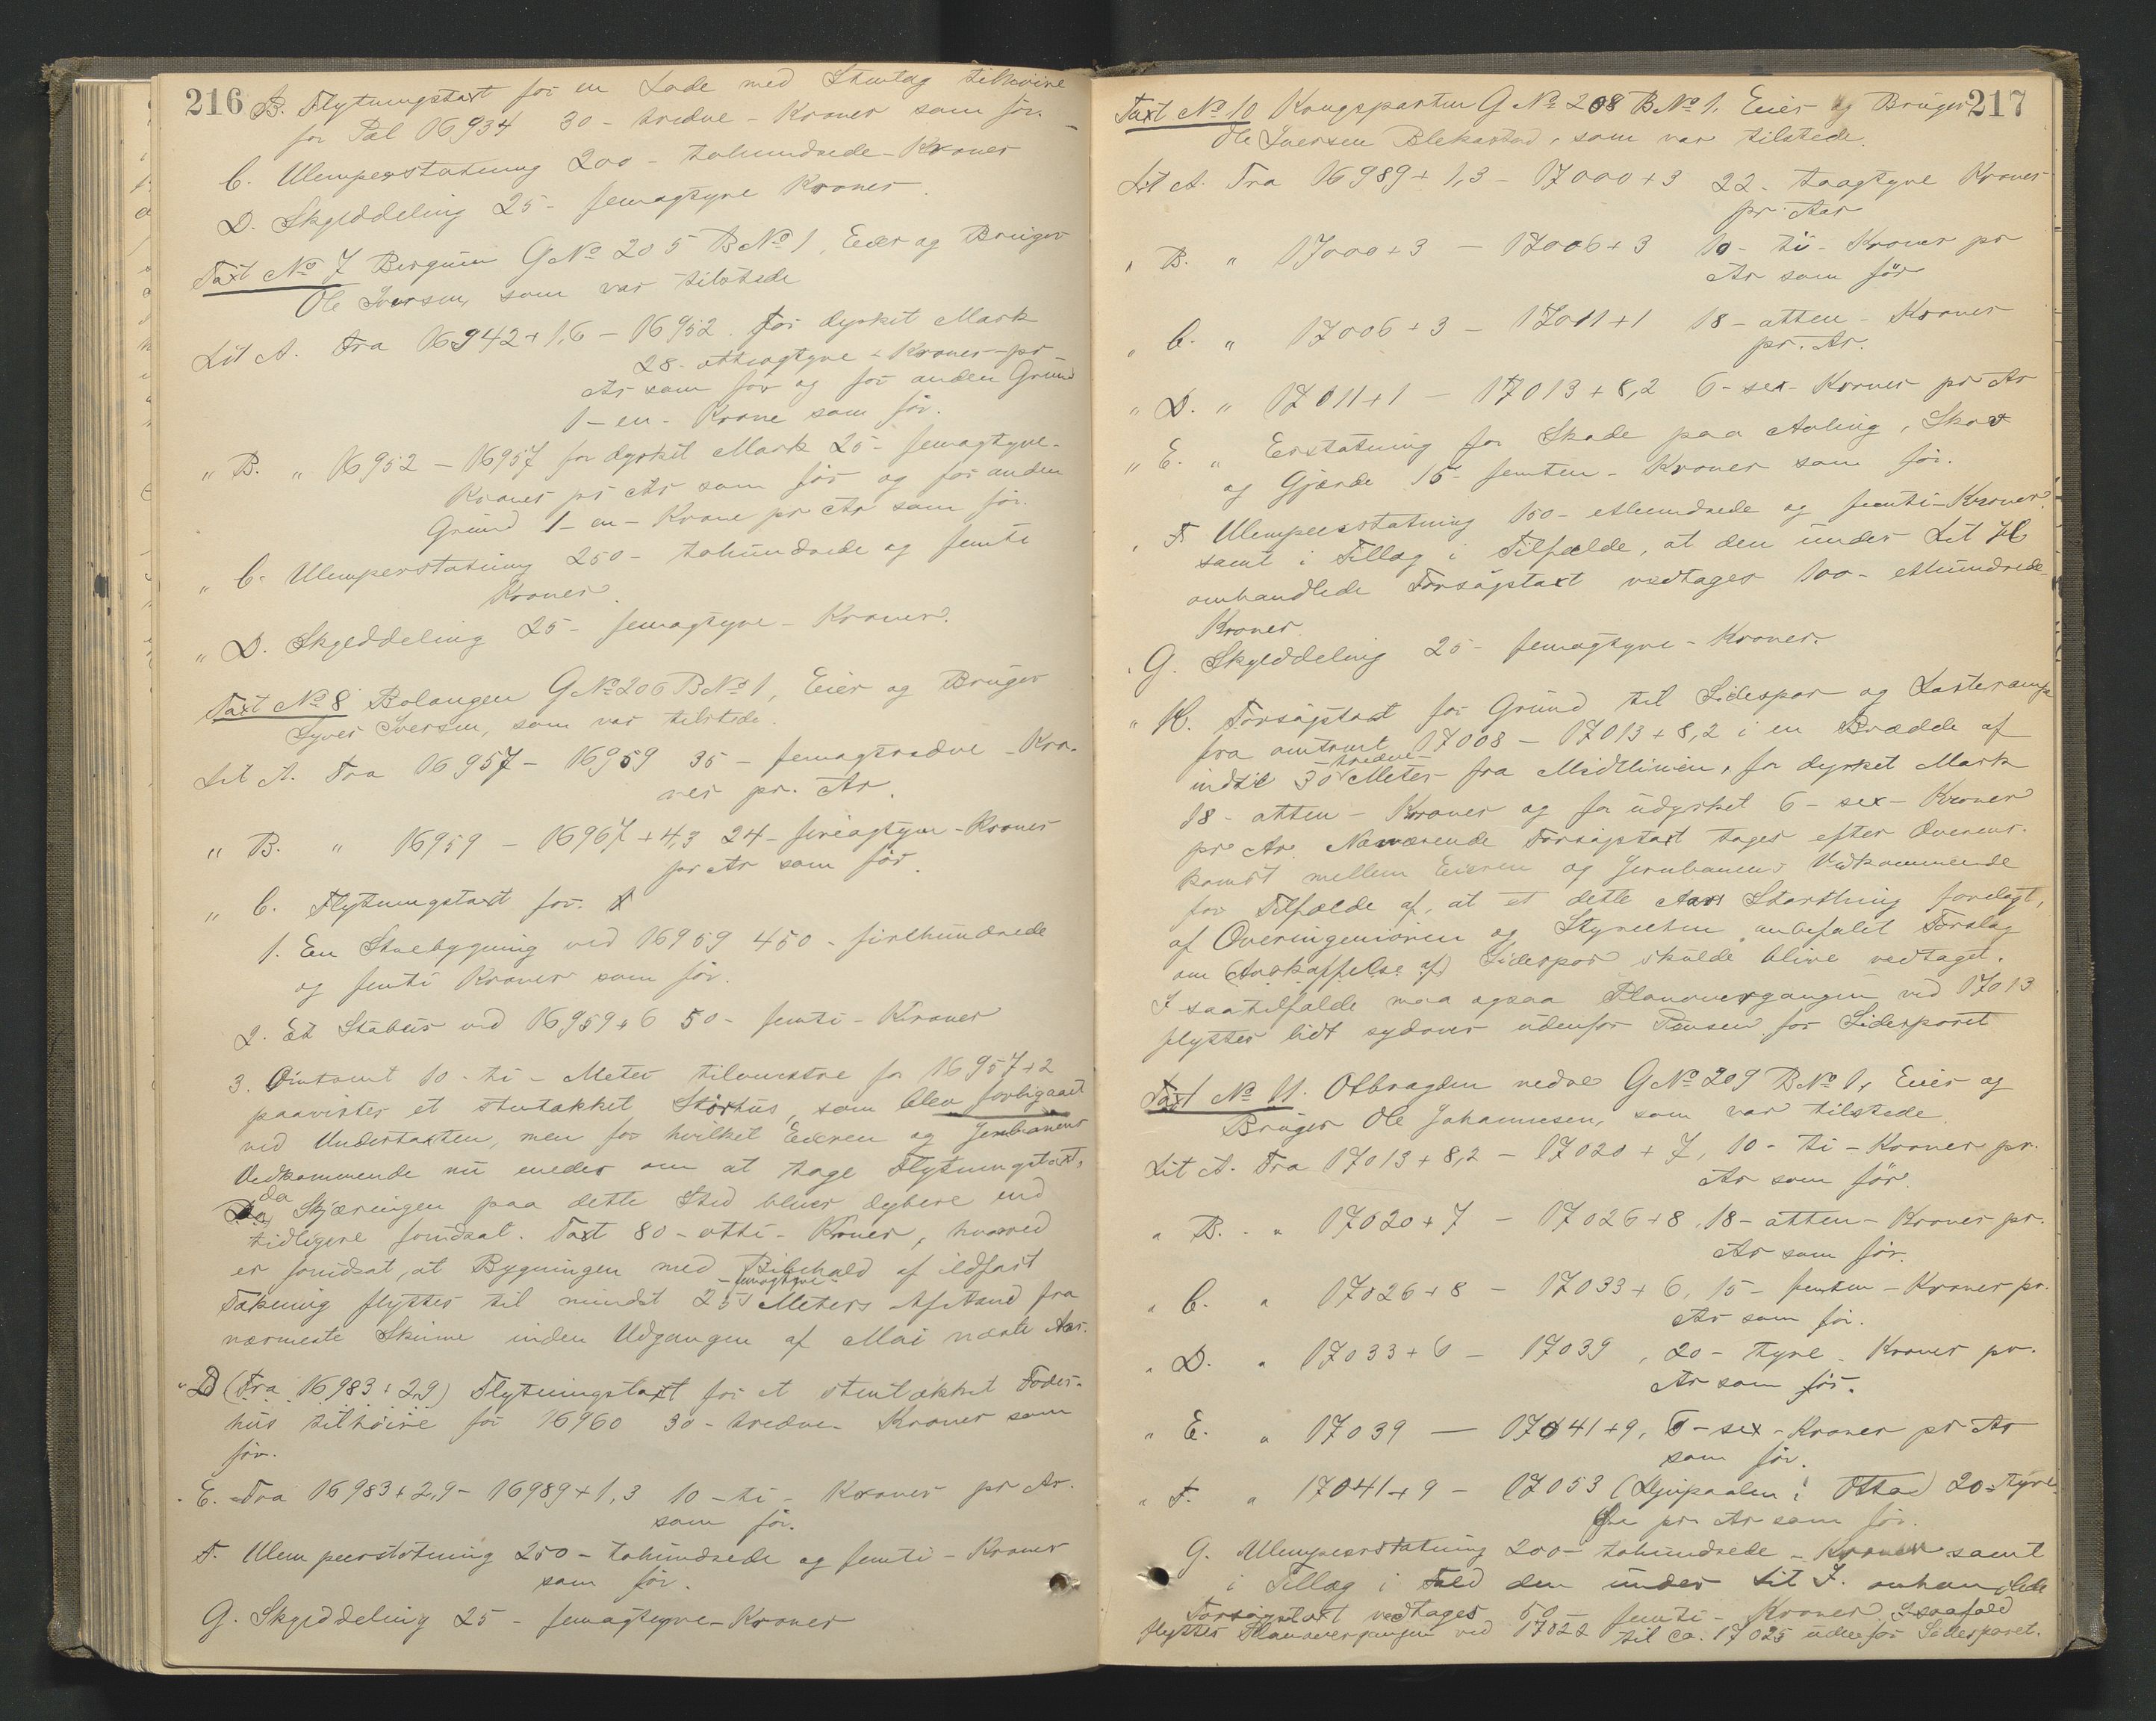 216
B. Flytningstaxt for en Lade med Stentag tilhøire
for Pæl 16934 30 - tredve - Kroner som før.
C. Ulempeerstatning 200 - tohundrede - Kroner
D. Skylddeling 25 - femogtyve Kroner.
Taxt No 7 Bergum G No 205 B No 1, Eier og Bruger
Ole Iversen, som var tilstede
Lit A. Fra 16942 + 1,6 - 16952. for dyrket Mark
28 - otteogtyve - Kroner - pr
Ar som før og for anden Grund
1 - en - Krone som før.
" B. " 16952 - 16957 for dyrket Mark 25 - femogtyve -
Kroner pr Ar som før og for anden
Grund 1 - en - Krone pr Ar som før.
" C. Ulempeerstatning 250 - tohundrede og femti
Kroner.
" D. Skylddeling 25 - femogtyve - Kroner.
Taxt No 8 Bolongen G No 206 B No 1, Eier og Bruger
Syver Iversen, som var tilstede.
Lit A. Fra 16957 - 16959 35 - femogtredve - Kro-
ner pr. Ar.
" B. " 16959 - 16967 + 4,3 24 - fireogtyve - Kroner
pr Ar som før.
" C. Flytningstaxt for.
1. En Stuebygning ved 16959 450 - firehundrede
og femti Kroner som før.
2. Et Stabur ved 16959 + 6 50 - femti - Kroner
3. Omtrent 10 - ti - Meter tilvenstre for 16957 + 2
paavistes et stentækket Størhus, som blev forbigaaet
ved Undertaxten, men for hvilket Eieren og Jernbanens
Vedkommende nu enedes om at tage Flytningstaxt,
da Skjæringen paa dette Sted bliver dybere end
tidligere forudsat. Taxt 80 - otti - Kroner, hvorved
er forudsat, at Bygningen med Bibehold af ildfast
- femogtyve -
Tækning flyttes til mindst 25 Meters Afstand fra
nærmeste Skinne inden Udgangen af Mai næste Aar.
" D (Fra 16983 + 2,9) Flytningstaxt for et stentækket Foder-
hus tilhøire for 16960 30 - tredve - Kroner som
før.
" E. Fra 16983 + 2,9 - 16989 + 1,3 10 - ti - Kroner pr Ar.
som før.
F. Ulempeerstatning 250 - tohundrede og femti - Kroner
som før.
G. Skylddeling 25 - femogtyve - Kroner
217
Taxt No 10 Krugsparten G No 208 B No 1. Eier og Bruger
Ole Iversen Blekastad, som var tilstede.
Lit A. Fra 16989 + 1,3 - 17000 + 3 22 - toogtyve Kroner
pr. Aar
" B. " 17000 + 3 - 17006 + 3 10 - ti - Kroner pr
Ar som før
" C. " 17006 + 3 - 17011 + 1 18 - atten - Kroner
pr. Ar.
" D. " 17011 + 1 - 17013 + 8,2 6 - sex - Kroner pr Ar
" E. " Erstatning for Skade paa Avling, Skov
og Gjærde 15 - femten - Kroner som før.
" F. Ulempeerstatning 150 - ethundrede og femti - Kroner
samt i Tillæg i Tilfælde, at den under Lit H
omhandlede Forsøgstaxt vedtages 100 - ethundrede
Kroner
" G. Skylddeling 25 - femogtyve - Kroner.
" H. Forsøgstaxt for Grund til Sidespor og Lasterampe
fra omtrent 17008 - 17013 + 8,2 i en Bredde af
- tredve -
indtil 30 Meter fra Midtlinien, for dyrket Mark
18 - atten - Kroner og for udyrket 6 - sex - Kroner
pr Ar. Nærværende Forsøgstaxt tages efter Overens-
komst mellem Eieren og Jernbanens Vedkommende
for Tilfælde af, at et dette Aars Storthing forelagt,
af Overingeniøren og Styrelsen anbefalet Forslag
om (Anskaffelse af) Sidespor skulde blive vedtaget.
I saatilfælde maa ogsaa Planovergangen ved 17013
flyttes lidt sydover udenfor Pensen for Sidesporet
Taxt No 11. Otbragden nedre G No 209 B No 1, Eier og
Bruger Ole Johannesen, som var tilstede
Lit A. Fra 17013 + 8,2 - 17020 + 7, 10 - ti - Kroner pr.
Ar som før.
" B. " 17020 + 7 - 17026 + 8, 18 - atten - Kroner pr.
Ar som før.
" C. " 17026 + 8 - 17033 + 6, 15 - femten - Kroner pr.
Ar som før.
" D. " 17033 + 6 - 17039, 20 - tyve - Kroner pr.
Ar som før.
" E. " 17039 - 17041 + 9, 6 - sex - Kroner pr Ar
som før.
" F. " 17041 + 9 - 17053 (Djupaalen i Otta) 20 - tyve
Øre pr Ar som før.
G. Ulempeerstatning 200 - tohundrede - Kroner samt
i Tillæg i Fald den under Lit I. omhandlede
Forsøgstaxt vedtages 50 - femti - Kroner. I saafald
flyttes Planovergangen ved 17022 til ca. 17025 udenfor Sidesporet.